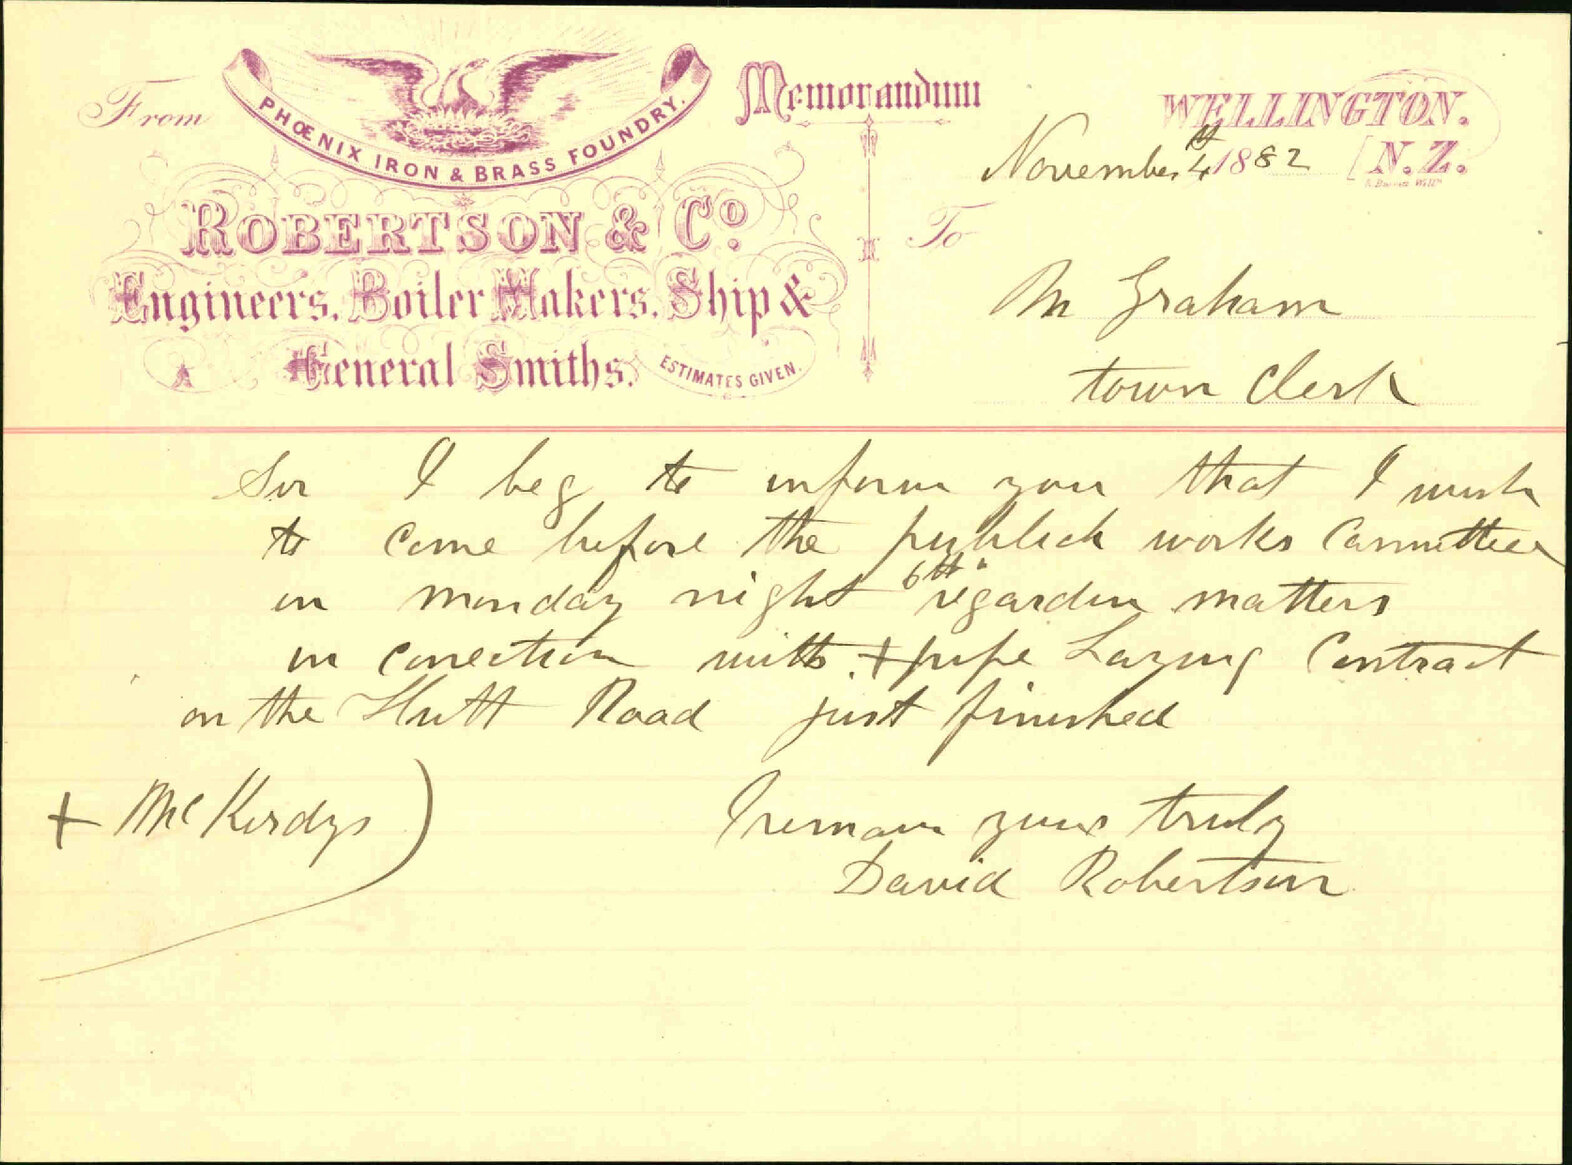 From
PHŒNIX IRON & BRASS FOUNDRY.
ROBERTSON & Co.
Engineers, Boiler Makers, Ship &
General Smiths.
ESTIMATES GIVEN.
Memorandum
WELLINGTON.
N.Z.
November 4th 1882
To
Mr Graham
town Clerk
Sir I beg to inform you that I wish
to come before the publick works Committee
on monday night 6th regardin matters
in conection with + pipe Laying Contract
on the Hutt Road just finished
+ McKirdys)
I remain yours truly
David Robertson